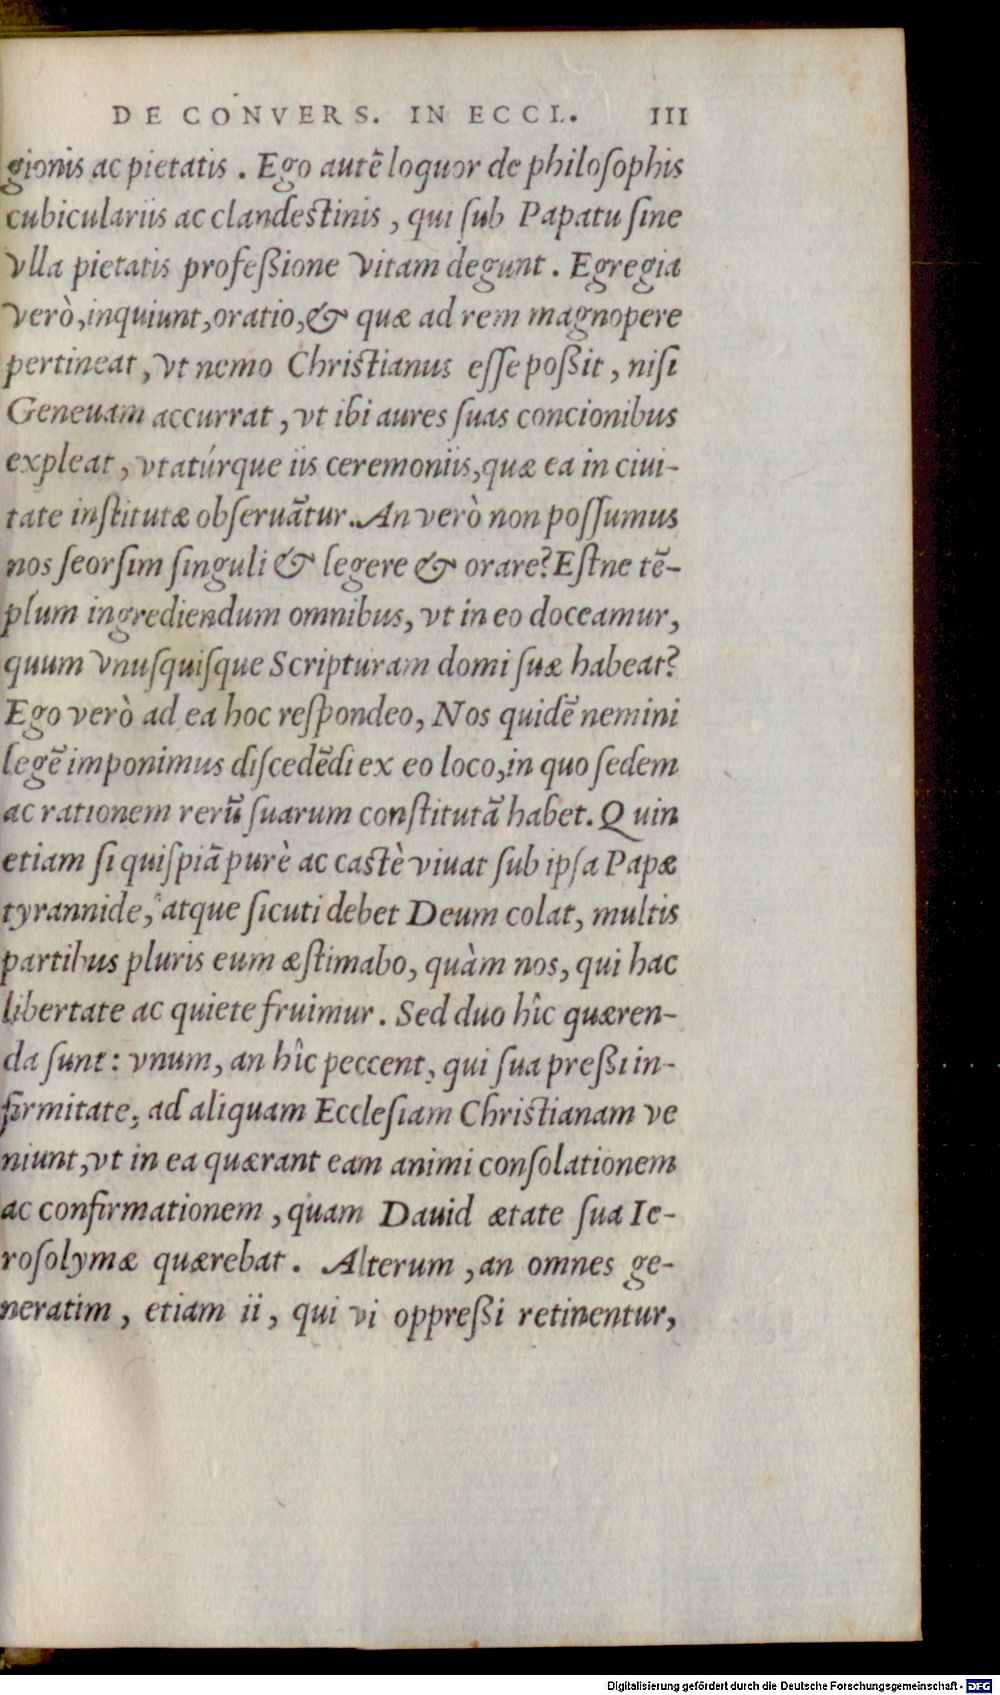 DE CONVERS. IN ECCL. 111
gionis ac pietatis. Ego autē loquor de philoſophis
cubiculariis ac clandeſtinis, qui ſub Papatu ſine
vlla pietatis profeßione vitam degunt. Egregia
verò, inquiunt, oratio, & quæ ad rem magnopere
pertineat, vt nemo Chriſtianus eſſe poßit, niſi
Geneuam accurrat, vt ibi aures ſuas concionibus
expleat, vtatúrque iis ceremoniis, quæ ea in ciui-
tate inſtitutæ obſeruātur. An verò non poſſumus
nos ſeorſim ſinguli & legere & orare? Eſtne tē-
plum ingrediendum omnibus, vt in eo doceamur,
quum vnuſquiſque Scripturam domi ſuæ habeat?
Ego verò ad ea hoc reſpondeo, Nos quidē nemini
legē imponimus diſcedēdi ex eo loco, in quo ſedem
ac rationem rerū ſuarum conſtitutā habet. Quin
etiam ſi quiſpiā purè ac caſtè viuat ſub ipſa Papæ
tyrannide, atque ſicuti debet Deum colat, multis
partibus pluris eum æſtimabo, quàm nos, qui hac
libertate ac quiete fruimur. Sed duo hîc quæren-
da ſunt: vnum, an hîc peccent, qui ſua preßi in-
firmitate, ad aliquam Eccleſiam Chriſtianam ve
niunt, vt in ea quærant eam animi conſolationem
ac confirmationem, quam Dauid ætate ſua Ie-
roſolymæ quærebat. Alterum, an omnes ge-
neratim, etiam ii, qui vi oppreßi retinentur,
Digitalisierung gefördert durch die Deutsche Forschungsgemeinschaft - DFG